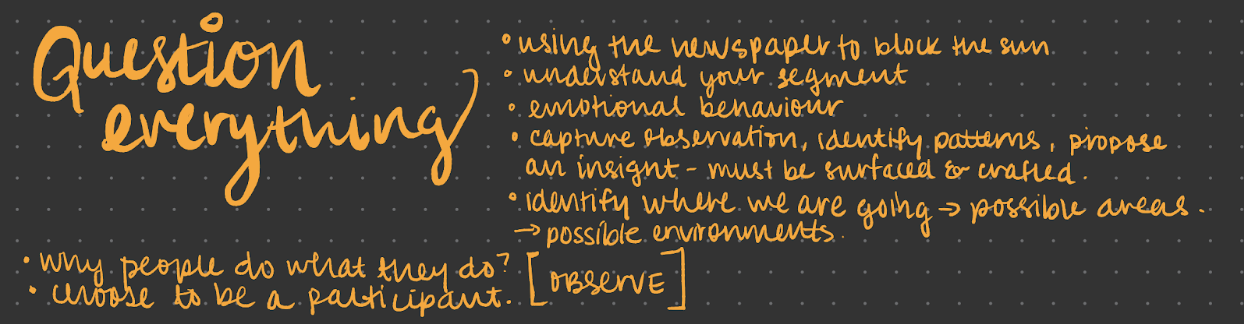 Question
everything
• using the newspaper to block the sun
• understand your segment
• emotional behaviour
• capture observation, identify patterns, propose
an insight - must be surfaced & crafted.
• identify where we are going → possible areas.
→ possible environments.
• why people do what they do?
• choose to be a participant. [OBSERVE]